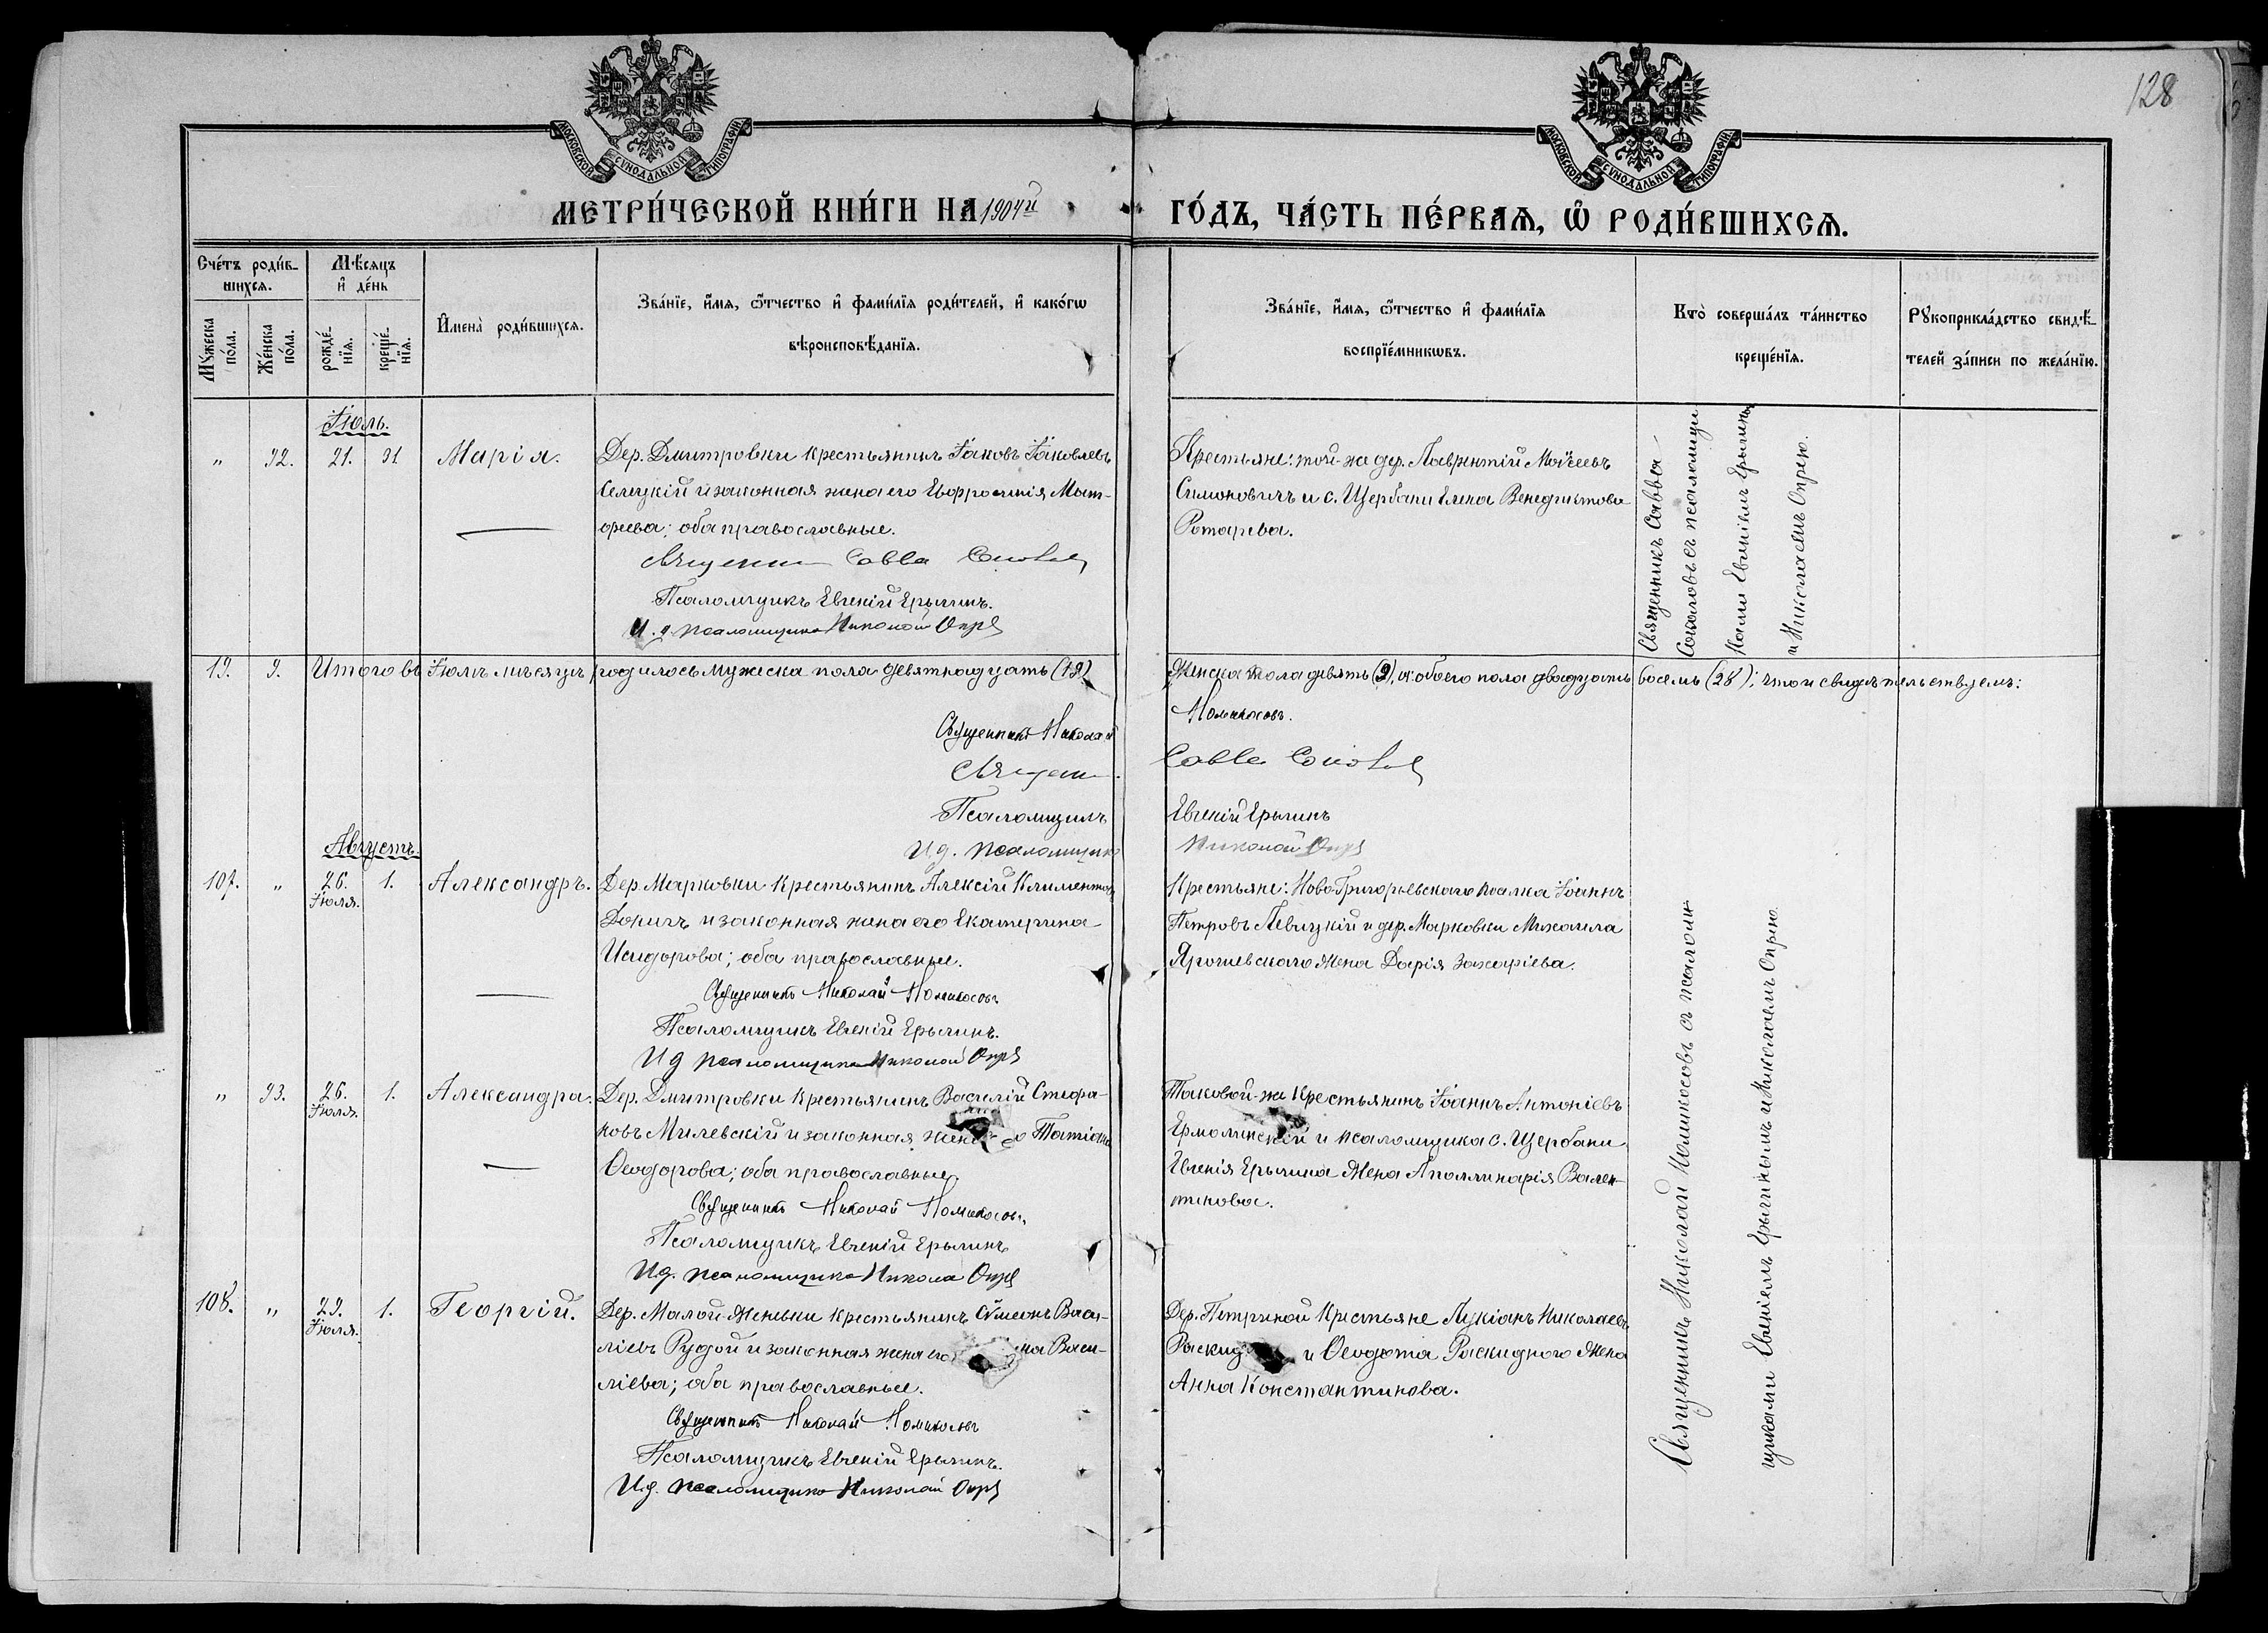 128
МОСКОВСКОЙ СѴНОДАЛЬНОЙ ТИПОГРАФІИ
МОСКОВСКОЙ СѴНОДАЛЬНОЙ ТИПОГРАФІИ
МЕТРИ́ЧЕСКОЙ КНИ́ГИ НА 1904й ГО́ДЪ, ЧА́СТЬ ПЕ́РВАѦ, Ѡ҆ РОДИ́ВШИХСѦ.
Сче́тъ роди́в-
шихсѧ.
Мѣ́сяцъ
и҆ де́нь
Мꙋ́жеска
по́ла.
Же́нска
по́ла.
рожде́-
нїѧ.
креще́-
нїѧ.
И҆мена̀ роди́вшихсѧ.
Зва́нїе, и҆́мѧ, ѻ҆́тчество и҆ фами́лїѧ роди́телей, и҆ како́гѡ
вѣроисповѣ́данїѧ.
Зва́нїе, и҆́мѧ, ѻ҆́тчество и҆ фами́лїѧ
воспрїе́мникѡвъ.
Кто̀ соверша́лъ та́инство
креще́нїѧ.
Рꙋкоприкла́дство свидѣ́-
телей за́писи по жела́нїю.
Іюль.
„ 92. 21. 31 Марія.
Дер. Дмитровки крестьянинъ Іаковъ Іаковлевъ
Селецкій и законная жена его Евфросинія Мат-
ѳеева; оба православные.
Священникъ Савва Соколовъ
Псаломщикъ Евгеній Ерыгинъ.
И. д. псаломщика Николай Опря
Крестьяне: той-же дер. Лаврентій Моѵсеевъ
Симоновичъ и с. Щербани Елена Венедиктова
Ротарева.
Священникъ Савва
Соколовъ съ псаломщи
ками Евгеніемъ Ерыгинымъ
и Николаемъ Опрею.
19. 9. Итого въ Іюлѣ мѣсяцѣ родилось мужеска пола девятнадцать (19) женска пола девять (9), а обоего пола двадцать восемь (28); что и свидѣтельствуемъ:
Священникъ Николай Номикосовъ.
Священникъ Савва Соколовъ
Псаломщикъ Евгеній Ерыгинъ
И д. псаломщика Николай Опря
Августъ.
107. „ 26. Іюля. 1. Александръ.
Дер. Марковки крестьянинъ Алексій Климентовъ
Доничъ и законная жена его Екатерина
Исидорова; оба православные.
Священникъ Николай Номикосовъ
Псаломщикъ Евгеній Ерыгинъ.
И д псаломщика Николай Опря
Крестьяне: Ново-Григорьевскаго поселка Іоаннъ
Петровъ Левицкій и дер. Марковки Михаила
Ярошевскаго жена Дарія Захаріева.
„ 93. 26. Іюля. 1. Александра.
Дер. Дмитровки крестьянинъ Василій Стефа-
новъ Милевскій и законная жена его Татіана
Ѳеодорова; оба православные.
Священникъ Николай Номикосовъ
Псаломщикъ Евгеній Ерыгинъ
И д. псаломщика Никола Опря
Таковой-же крестьянинъ Іоаннъ Антоніевъ
Ермолинскій и псаломщика с. Щербани
Евгенія Ерыгина жена Аполлинарія Вален-
тинова.
108. „ 29. Іюля. 1. Георгій.
Дер. Малой-Женевки крестьянинъ Сѵмеонъ Васи-
ліевъ Рудой и законная жена его на Васи-
ліева; оба православные.
Священникъ Николай Номикосовъ
Псаломщикъ Евгеній Ерыгинъ.
И д. псаломщика Николай Опря
Дер. Петриной крестьяне Лукіанъ Николаевъ
Раскид и Ѳеодота Раскидного жена
Анна Константинова.
Священникъ Николай Номикосовъ съ псалом-
щиками Евгеніемъ Ерыгинымъ и Николаемъ Опрею.